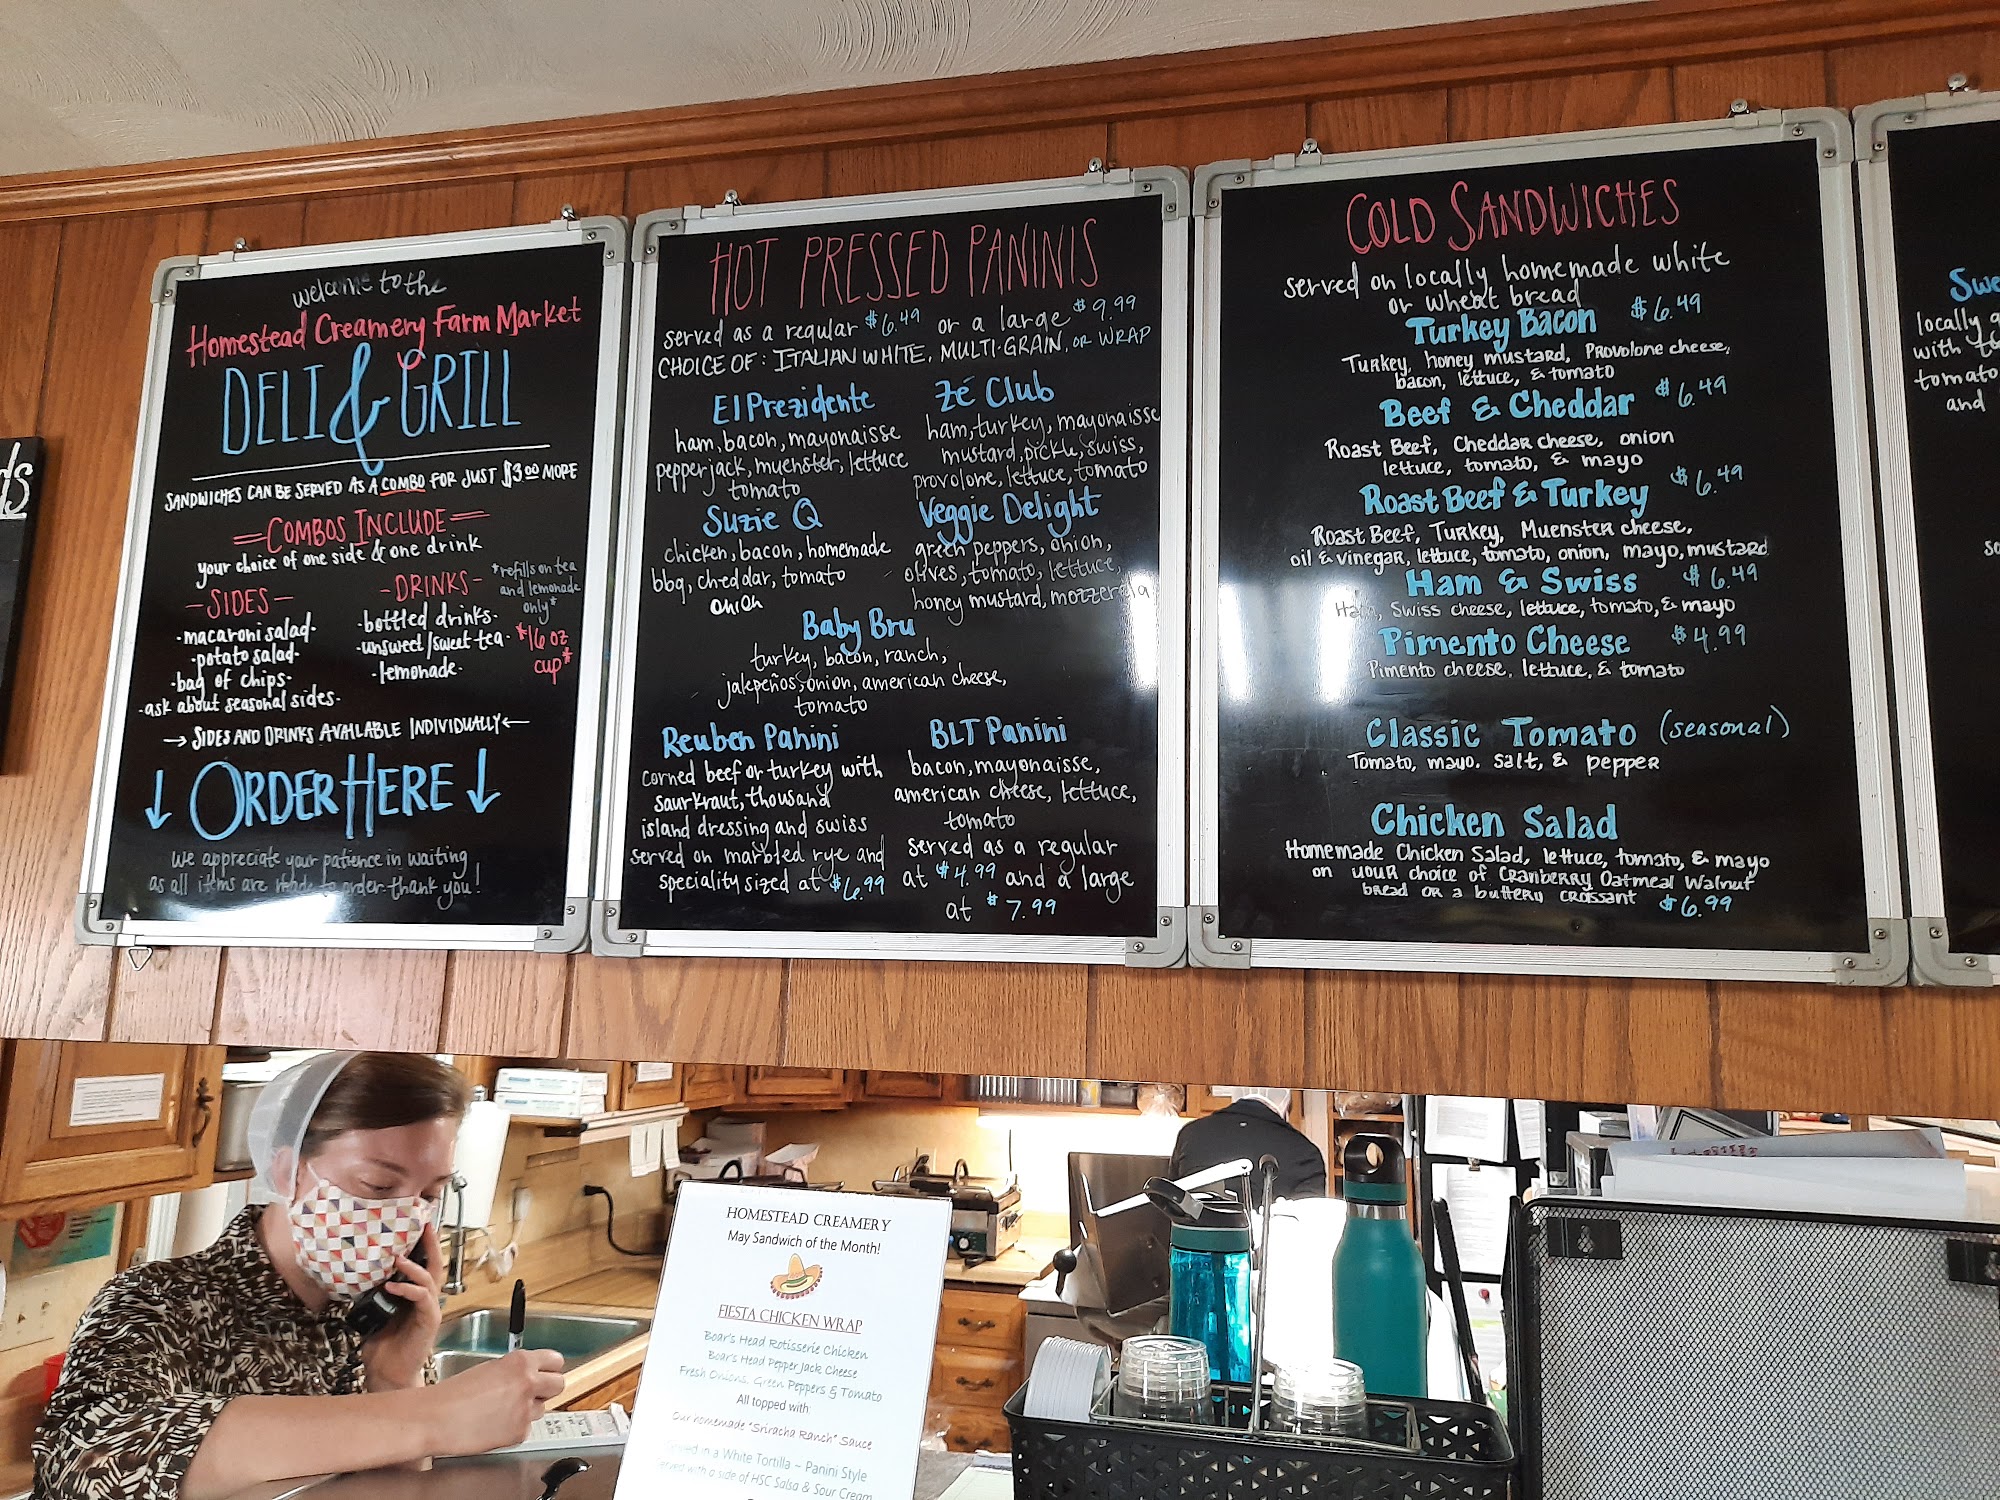 ds
welcome to the
Homestead Creamery Farm Market
DELI & GRILL
SANDWICHES CAN BE SERVED AS A COMBO FOR JUST $3.00 MORE
=COMBOS INCLUDE=
your choice of one side & one drink
-SIDES-
-macaroni salad-
-potato salad-
-bag of chips-
-ask about seasonal sides-
-DRINKS-
-bottled drinks-
-unsweet/sweet tea-
-lemonade-
*refills on tea
and lemonade
only*
*16 oz
cup*
→ SIDES AND DRINKS AVAILABLE INDIVIDUALLY ←
↓ ORDER HERE ↓
We appreciate your patience in waiting
as all items are made to order thank you!
HOT PRESSED PANINIS
served as a regular $6.49 or a large $9.99
CHOICE OF: ITALIAN WHITE, MULTI-GRAIN, OR WRAP
El Prezidente
ham, bacon, mayonaisse
pepperjack, muenster, lettuce
tomato
Zé Club
ham, turkey, mayonaisse
mustard, pickle, swiss,
provolone, lettuce, tomato
Suzie Q
chicken, bacon, homemade
bbq, cheddar, tomato
onion
Veggie Delight
green peppers, onion,
olives, tomato, lettuce,
honey mustard, mozzerella
Baby Bru
turkey, bacon, ranch,
jalepeños, onion, american cheese,
tomato
Reuben Panini
corned beef or turkey with
saurkraut, thousand
island dressing and swiss
served on marbled rye and
speciality sized at $6.99
BLT Panini
bacon, mayonaisse,
american cheese, lettuce,
tomato
served as a regular
at $4.99 and a large
at $7.99
COLD SANDWICHES
served on locally homemade white
or wheat bread
Turkey Bacon $6.49
Turkey, honey mustard, Provolone cheese,
bacon, lettuce, & tomato
Beef & Cheddar $6.49
Roast Beef, Cheddar cheese, onion
lettuce, tomato, & mayo
Roast Beef & Turkey $6.49
Roast Beef, Turkey, Muenster cheese,
oil & vinegar, lettuce, tomato, onion, mayo, mustard
Ham & Swiss $6.49
Ham, Swiss cheese, lettuce, tomato, & mayo
Pimento Cheese $4.99
Pimento cheese, lettuce, & tomato
Classic Tomato (seasonal)
Tomato, mayo. salt, & pepper
Chicken Salad
Homemade Chicken Salad, lettuce, tomato, & mayo
on your choice of Cranberry Oatmeal Walnut
bread or a buttery croissant $6.99
Swe
locally
with
tomato
and
so
HOMESTEAD CREAMERY
May Sandwich of the Month!
FIESTA CHICKEN WRAP
Boar's Head Rotisserie Chicken
Boar's Head Pepper Jack Cheese
Fresh Onions, Green Peppers & Tomato
All topped with:
Our homemade "Sriracha Ranch" Sauce
Served in a White Tortilla ~ Panini Style
served with a side of HSC Salsa & Sour Cream